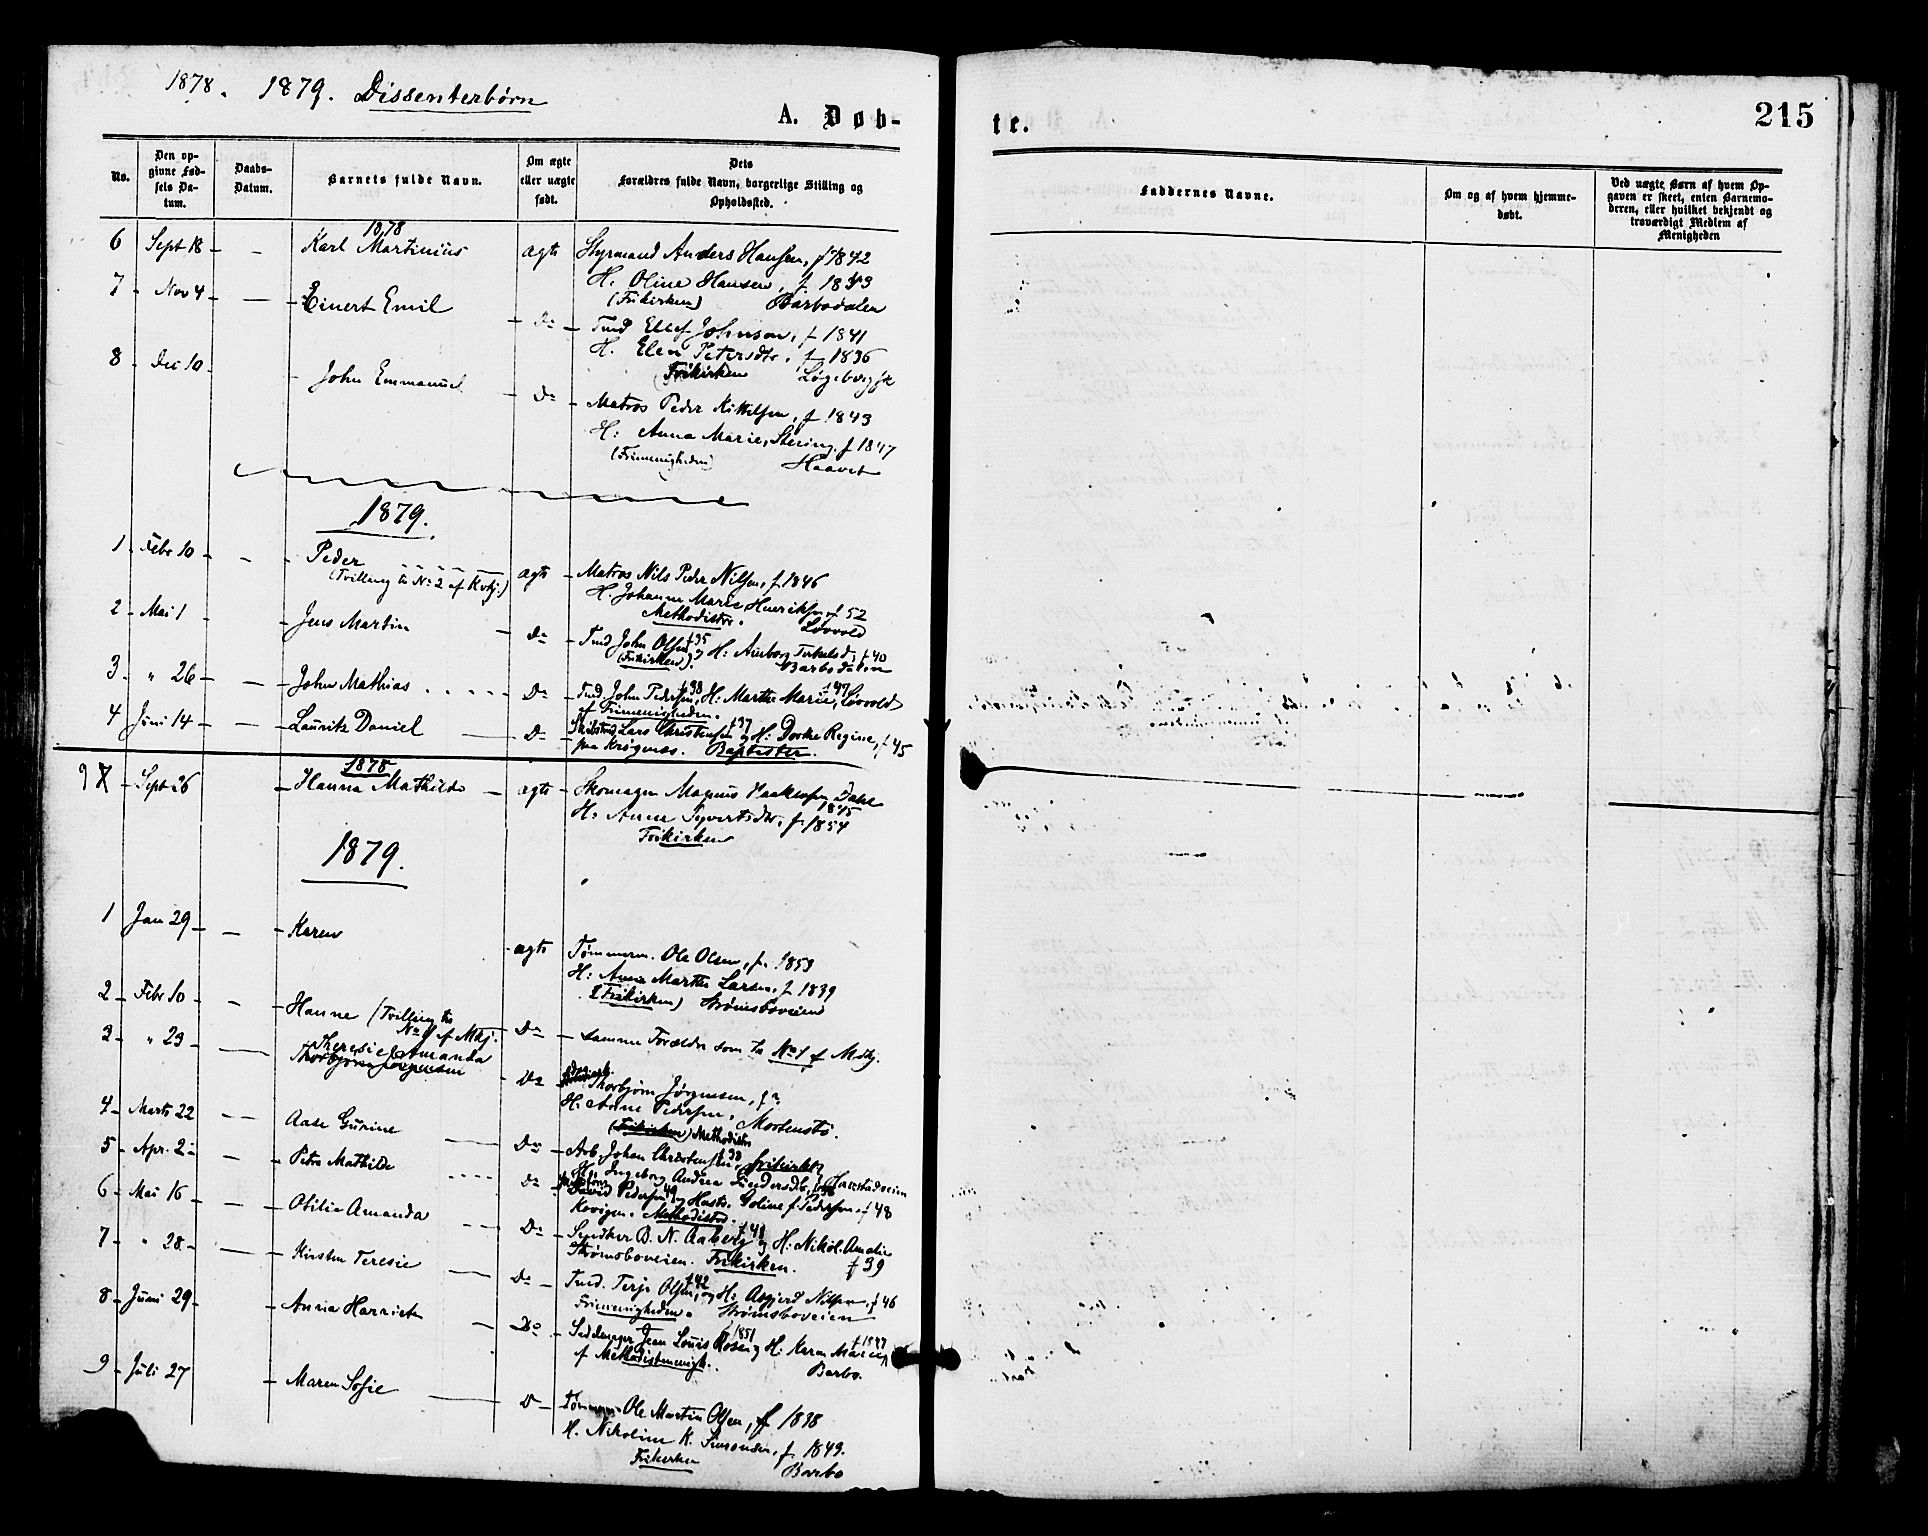 1878. 1879. Dissenterbørn
A. Døb-
te.
215
No.
Den op-
givne Fød-
sels Da-
tum.
Daabs-
Datum.
Barnets fulde Navn.
Om ægte
eller uægte
født.
Dets
Forældres fulde Navn, borgerlige Stilling og
Opholdssted.
Faddernes Navne.
Om og af hvem hjemme-
døbt.
Ved uægte Børn af hvem Op-
gaven er skeet, enten Barnemo-
deren, eller hvilket bekjendt og
troværdigt Medlem af
Menigheden
1878
6 Sept 18 - - Karl Martinius ægte Styrmand Anders Hansen, f 1842
H. Oline Hansen, f 1843
(Frikirken) Barbodalen
7 Nov 4 - Einert Emil - Do - Tmd Ellef Johnson, f 1841
H. Elen Petersdtr. f 1836
Frikirken
8 Dec 10 - John Emmanuel - Do - Matros Peder Kittelsen, f 1843
H: Anna Marie, f 1847
(Frimenigheden) Haavet
1879.
1 Febr 10 - - Peder ægte - Matros Nils Peder Nilsen, f 1846
(Tvilling til No 2 af Kvkj.)
H. Johanne Marie Henriksen f 52
Methodister. Løvold
2 Mai 1 - Jens Martin - Do - Tmd John Olsen f 35 og H: f 40
(Frikirken). Barbodalen
3 " 26 - John Mathias Do - Tmd John Pedersen f 38, H: Marthe Marie f 47, Løvold
af Frimenigheden.
4 Juni 14 - Lauritz Daniel Do - Lars Christensen f 37 og H: Dorthe Regine, f 45
paa Krøgenes. Baptister.
1878
9 Sept 26 - Hanna Mathilde - ægte Skomager Magnus Dahl
1845
H: Anne Syvertsdtr. f. 1854
Frikirken
1879.
1 Jan 29 - - Karen ægte Tømmerm. Ole Olsen, f. 1853
H: Anne Marthe Larsen, f 1839
(Frikirken) Strømsboveien
2 Febr 10 - - Hanne (Tvilling til
No 1 af Mkj. Do - samme Forældre som til No 1 af Mkj.
3 " 23 - Theresie Amanda
Do Thorbjørn Jørgensen, f
H: Anne Pedersen, Mortensbø.
(Frikirken) Methodister
4 Marts 22 - Aase Gurine Do - Arb. Johan Christensen f 38, Frikirken
H: Ingeborg Andrea
5 Apr. 2 - Petra Mathilde Do David Pedersen f 49 og Hustr. Goline f Pedersen, f 48
Methodister.
6 Mai 16 - Otilie Amanda Do - B. N. Aaberg f 41 og H: Nikol. Amalie
Strømsboveien. Frikirken. f 39
7 " 28 - Kirsten Teresie Do - Tmd. Terje Olsen f 42, og H: Asgjerd Nilsen, f 46
Frimenigheden. Strømsboveien
8 Juni 29 - Anna Harriet Do - Sadelmager Jean Louis Rosen f 1851 og H: Karen Marie f 1847
af Methodistmenigh. Barbo.
9 Juli 27 - Maren Sofie Do - Tømmerm Ole Martin Olsen, f 1838
H. Nikoline K. Simonsen, f 1849.
Frikirken Barbo